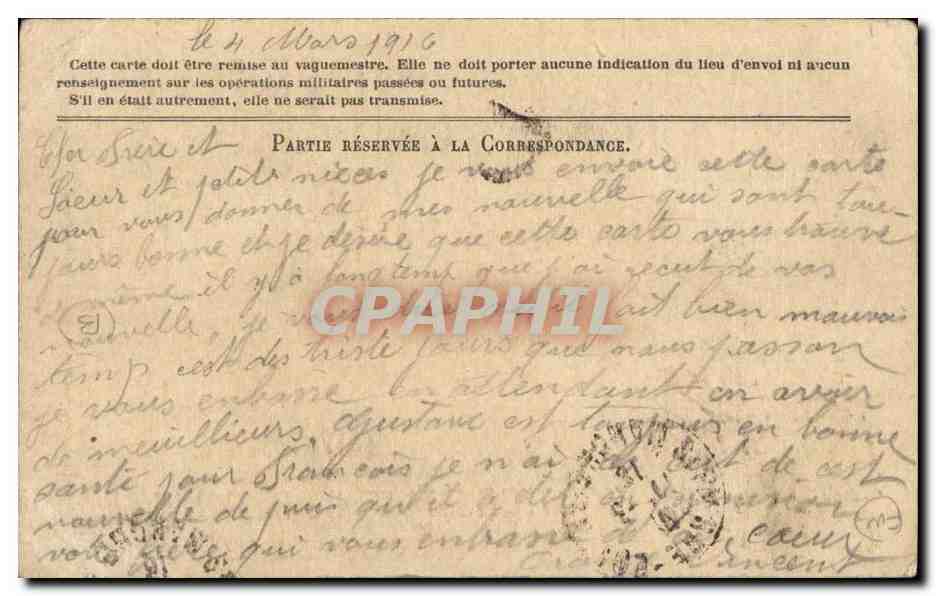 le 4 Mars 1916
Cette carte doit être remise au vaguemestre. Elle ne doit porter aucune indication du lieu d'envoi ni aucun
renseignement sur les opérations militaires passées ou futures.
S'il en était autrement, elle ne serait pas transmise.
PARTIE RÉSERVÉE À LA CORRESPONDANCE.
Cher Frère et
Soeur et petite nièces je vous envoie cette carte
pour vous donner de mes nouvelle qui sont tou-
jours bonne et je désire que cette carte vous trouve
de même il y a longtemp que j'ai recut de vos
nouvelle, je vous fait bien mauvais
temp c'est des triste jours que nous passon
je vous en attendant en avoir
de meuillieurs, Gustave est toujours en bonne
santé pour François je n'ai de cest
nouvelle de puis qu'il
votre frère qui vous embrasse de coeur
Vincent
CPAPHIL